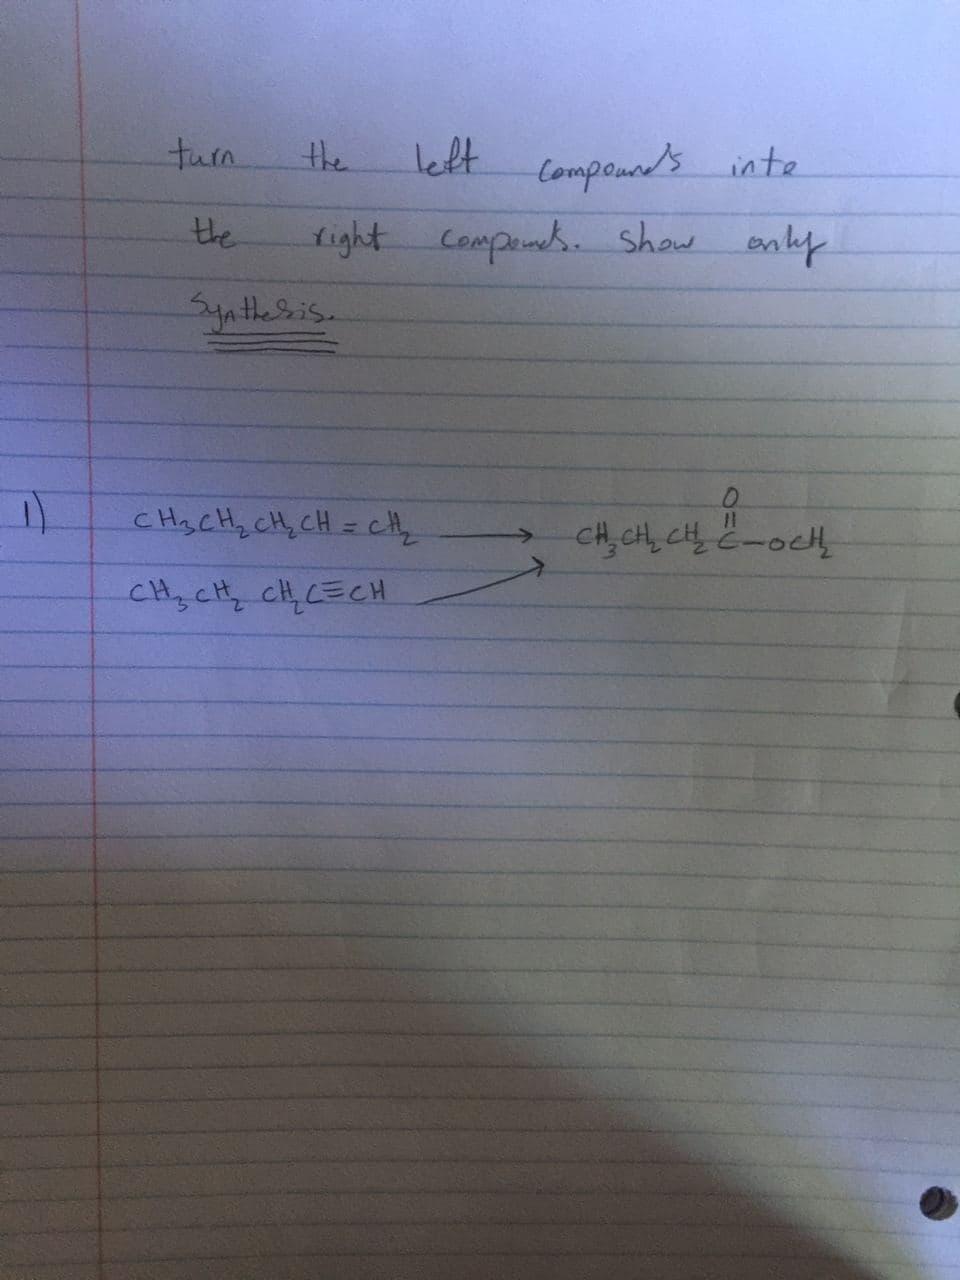 turn the left compounds into
the right compounds. show only
Synthesis.
O
||
1) CH₃CH₂CH₂CH=CH₂ → CH₃CH₂CH₂C-OCH₂
CH₃CH₂CH₂C≡CH